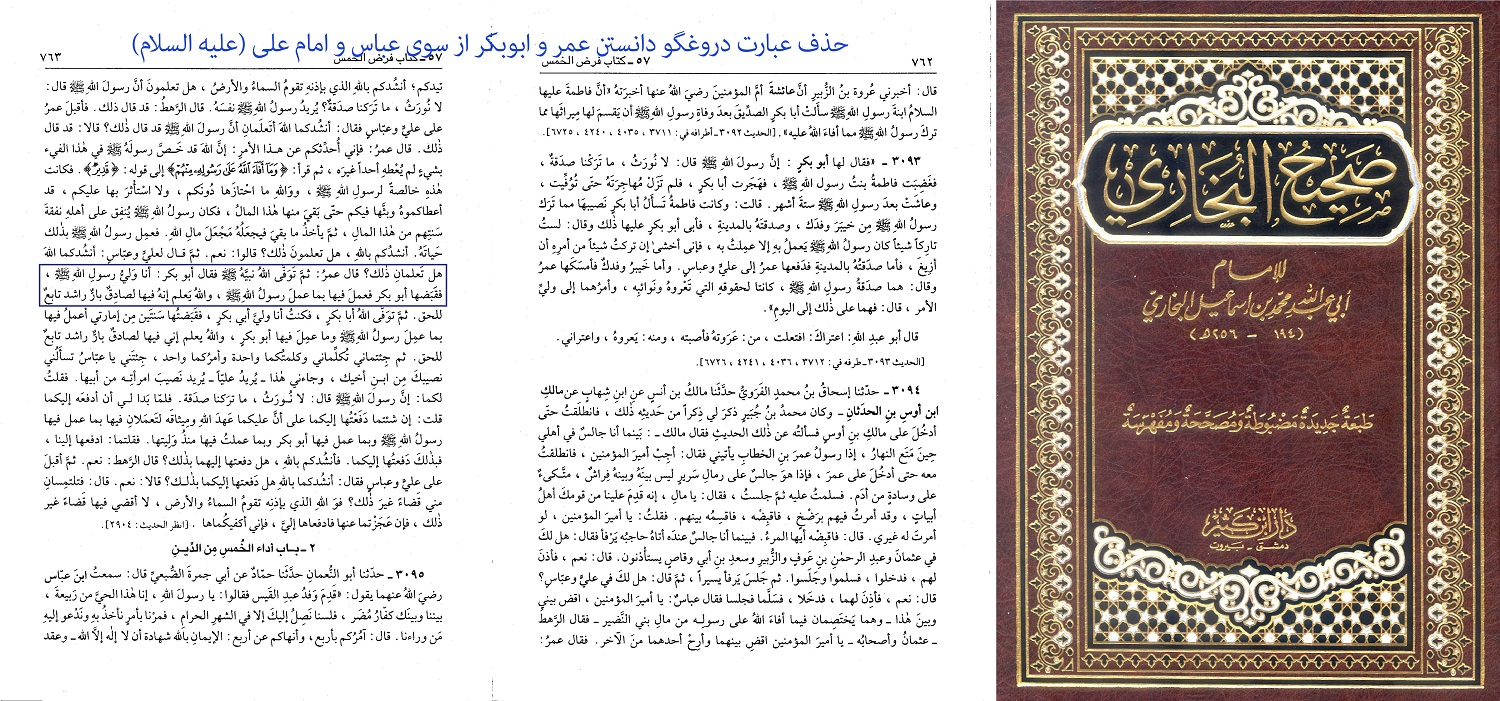 حذف عبارت دروغگو دانستن عمر و ابوبکر از سوی عباس و امام علی (علیه السلام)
٧٦٢
٥٧ ـ كتاب فرض الخمس
قال: أخبرني عُروةُ بنُ الزُّبيرِ أنَّ عائشةَ أمَّ المؤمنينَ رضيَ اللهُ عنها أخبرَتهُ «أنَّ فاطمةَ عليها
السلامُ ابنةَ رسولِ اللهِ ﷺ سألَتْ أبا بكرٍ الصدِّيقَ بعدَ وفاةِ رسولِ اللهِ ﷺ أن يَقسِمَ لها مِيراثَها مما
تركَ رسولُ اللهِ ﷺ مما أفاءَ اللهُ عليه». [الحديث ٣٠٩٢ ـ أطرافه في: ٣٧١١ ، ٤٠٣٥ ، ٤٢٤٠ ، ٦٧٢٥].
٣٠٩٣ ـ «فقال لها أبو بكرٍ : إنَّ رسولَ اللهِ ﷺ قال: لا نُورَثُ ، ما تَرَكنا صدَقةٌ ،
فغَضِبَت فاطمةُ بنتُ رسولِ اللهِ ﷺ ، فهَجَرت أبا بكرٍ ، فلم تَزَلْ مُهاجِرَتَهُ حتَّى تُوُفِّيَت ،
وعاشَتْ بعدَ رسولِ اللهِ ﷺ ستةَ أشهر. قالت: وكانت فاطمةُ تَسألُ أبا بكرٍ نَصيبَها مما تَرَك
رسولُ اللهِ ﷺ مِن خيبَرَ وفدَك ، وصدقتَهُ بالمدينةِ ، فأبى أبو بكرٍ عليها ذٰلك وقال: لستُ
تاركاً شيئاً كان رسولُ اللهِ ﷺ يَعملُ بهِ إلا عمِلتُ به ، فإني أخشىٰ إن تركتُ شيئاً من أمرِهِ أن
أزِيغَ ، فأما صدَقتُهُ بالمدينةِ فدَفعها عمرُ إلى عليٍّ وعباسٍ. وأما خَيبرُ وفدكٌ فأمسَكها عمرُ
وقال: هما صدَقةُ رسولِ اللهِ ﷺ ، كانتا لحقوقهِ التي تَعْرُوهُ ونَوائبِه ، وأمرُهما إلى وليِّ
الأمر ، قال: فهما على ذٰلك إلى اليومِ».
قال أبو عبدِ اللهِ: اعتراكَ: افتعلت ، من: عَرَوتهُ فأصبته ، ومنه: يَعروهُ ، واعتراني.
[الحديث ٣٠٩٣ ـ طرفه في: ٣٧١٢ ، ٤٠٣٦ ، ٤٢٤١ ، ٦٧٢٦].
٣٠٩٤ ـ حدّثنا إسحاقُ بنُ محمدٍ الفَرَويُّ حدَّثَنا مالكُ بن أنسٍ عنِ ابنِ شهابٍ عن مالكِ
ابن أوسِ بنِ الحدَثانِ ـ وكان محمدُ بنُ جُبَيرٍ ذكرَ لي ذِكراً من حَديثِهِ ذلك ، فانطلقتُ حتّى
أدخُلَ على مالكِ بنِ أوسٍ فسألتُه عن ذلكَ الحديثِ فقال مالك ـ : بَينما أنا جالسٌ في أهلي
حِينَ مَتَعَ النهارُ ، إذا رسولُ عمرَ بنِ الخطابِ يأتيني فقال: أجِبْ أميرَ المؤمنين ، فانطلقتُ
معه حتى أدخُلَ على عمرَ ، فإذا هوَ جالسٌ على رمالِ سَريرٍ ليس بينَهُ وبينهُ فِراشٌ ، متَّكىءٌ
على وسادةٍ من أدَم. فسلمتُ عليه ثمَّ جلستُ ، فقال: يا مالِ ، إنه قَدِمَ علينا من قومِكَ أهلُ
أبياتٍ ، وقد أمرتُ فيهم برَضْخٍ ، فاقبِضْه ، فاقسِمْه بينهم. فقلتُ: يا أميرَ المؤمنين ، لو
أمرتَ له غيري. قال: فاقبِضْه أيُّها المرءُ. فبينما أنا جالسٌ عندَه أتاهُ حاجبُه يَرْفأ فقال: هل لكَ
في عثمانَ وعبدِ الرحمٰنِ بنِ عَوفٍ والزُّبيرِ وسعدِ بنِ أبي وقاصٍ يستأذنون. قال: نعم ، فأذنَ
لهم ، فدخلوا ، فسلموا وجَلَسوا. ثم جَلَسَ يَرفأ يَسيراً ، ثمَّ قال: هل لكَ في عليٍّ وعبّاسٍ؟
قال: نعم ، فأذِنَ لهما ، فدخَلا ، فسَلَّما فجلسا فقال عباسٌ: يا أميرَ المؤمنين ، اقضِ بيني
وبينَ هٰذا ـ وهما يَختَصِمانِ فيما أفاءَ اللهُ على رسولِهِ من مالِ بني النَّضير ـ فقال الرَّهطُ
ـ عثمانُ وأصحابُه ـ يا أميرَ المؤمنين اقضِ بينهما وأرِحْ أحدَهما منَ الآخر. فقال عمرُ:
٥٧ ـ كتاب فرض الخمس
٧٦٣
تيدكم؛ أنشُدكم باللهِ الذي بإذنهِ تقومُ السماءُ والأرضُ ، هل تعلمونَ أنَّ رسولَ اللهِ ﷺ قال:
لا نُورَثُ ، ما تَرَكنا صدَقةٌ؟ يُريدُ رسولُ اللهِ ﷺ نفسَهُ. قال الرَّهطُ: قد قال ذلك. فأقبلَ عمرُ
على عليٍّ وعبّاسٍ فقال: أنشُدكما اللهَ أتَعلَمانِ أنَّ رسولَ اللهِ ﷺ قد قال ذٰلك؟ قالا: قد قال
ذلك. قال عمرُ: فإني أُحدِّثُكم عن هـذا الأمرِ: إنَّ اللهَ قد خَـصَّ رسولَهُ ﷺ في هٰذا الفيء
بشيءٍ لم يُعْطِهِ أحداً غيرَه ، ثم قرأ: ﴿وَمَآ أَفَآءَ ٱللَّهُ عَلَىٰ رَسُولِهِۦ مِنْهُمْ﴾ إلى قوله: ﴿قَدِيرٌ﴾. فكانت
هٰذهِ خالصةً لرسولِ اللهِ ﷺ ، وواللهِ ما احتازَها دُونَكم ، ولا استأثرَ بها عليكم ، قد
أعطاكموهُ وبثَّها فيكم حتّى بَقيَ منها هٰذا المالُ ، فكان رسولُ اللهِ ﷺ يُنفِقُ على أهلهِ نفقةَ
سَنَتِهم من هٰذا المالِ ، ثمَّ يأخذُ ما بقيَ فيجعلُهُ مَجْعَلَ مالِ اللهِ. فعمِل رسولُ اللهِ ﷺ بذلك
حَياتَهُ. أنشُدكم باللهِ ، هل تعلمونَ ذٰلك؟ قالوا: نعم. ثمَّ قال لعليٍّ وعبّاسٍ: أنشُدكما اللهَ
هل تَعلمانِ ذلك؟ قال عمرُ: ثمَّ تَوَفَّى اللهُ نبيَّهُ ﷺ فقال أبو بكر: أنا وَليُّ رسولِ اللهِ ﷺ ،
فقَبَضَها أبو بكر فعملَ فيها بما عملَ رسولُ اللهِ ﷺ ، واللهُ يَعلم إنهُ فيها لصادقٌ بارٌّ راشد تابعٌ
للحق. ثمَّ توَفّى اللهُ أبا بكرٍ ، فكنتُ أنا وليَّ أبي بكر ، فقَبَضتُها سنَتَين مِن إمارتي أعملُ فيها
بما عملَ رسولُ اللهِ ﷺ وما عملَ فيها أبو بكرٍ ، واللهُ يعلم إني فيها لصادقٌ بارٌّ راشد تابعٌ
للحق. ثم جِئتماني تكلِّماني وكلمتُكما واحدة وأمرُكما واحد ، جِئتَني يا عبّاسُ تسألُني
نصيبَكَ مِن ابـنِ أخيك ، وجاءني هٰذا ـ يُريدُ عليّاً ـ يُريد نَصيبَ امرأتِـه من أبيها. فقلتُ
لكما: إنَّ رسولَ اللهِ ﷺ قال: لا نُـورَثُ ، ما تَرَكنا صدَقة. فلمّا بَدَا لـي أن أدفعَه إليكما
قلت: إن شئتما دَفَعْتُها إليكما على أنَّ عليكما عَهدَ اللهِ ومِيثاقَه لتَعمَلانِ فيها بما عمل فيها
رسولُ اللهِ ﷺ وبما عمل فيها أبو بكر وبما عملتُ فيها منذُ وَلِيتها. فقلتما: ادفعها إلينا ،
فبذلكَ دَفَعتُها إليكما. فأنشُدكم باللهِ ، هل دفعتها إليهما بذٰلك؟ قال الرَّهط: نعم. ثمَّ أقبلَ
على عليٍّ وعباسٍ فقال: أنشُدكما باللهِ هل دَفعتها إليكما بذٰلك؟ قالا: نعم. قال: فتلتمِسانِ
مني قَضاءً غيرَ ذٰلك؟ فوَ اللهِ الذي بإذنِه تقومُ السماءُ والأرض ، لا أقضي فيها قَضاءً غير
ذلك ، فإن عَجَزْتما عنها فادفعاها إليَّ ، فإني أكفيكُماها . [انظر الحديث: ٢٩٠٤].
٢ ـ باب أداء الخُمسِ مِن الدِّينِ
٣٠٩٥ ـ حدّثنا أبو النُّعمانِ حدَّثَنا حمّادٌ عن أبي جمرةَ الضُّبَعيِّ قال: سمعتُ ابنَ عبّاسٍ
رضيَ اللهُ عنهما يقول: «قَدِمَ وَفدُ عبدِ القَيس فقالوا: يا رسولَ اللهِ ، إنا هٰذا الحيَّ من رَبيعةَ ،
بيننا وبينَك كفّارُ مُضَر ، فلسنا نَصِلُ إليكَ إلا في الشهرِ الحرامِ ، فمرْنا بأمرٍ نأخذُ بهِ ونَدعو إليهِ
مَن وراءنا. قال: آمُرُكم بأربع، وأنهاكم عن أربع: الإيمانِ باللهِ شهادة أن لا إلٰه إلّا الله ـ وعقد
صَحِيحُ البُخَارِيّ
لِلإِمَام
أَبِي عَبْدِ اللهِ مُحَمَّد بن إسمَاعِيل البُخَارِيّ
(١٩٤ - ٢٥٦هـ)
طَبْعَةٌ جَدِيدَةٌ مَضْبُوطَةٌ وَمُصَحَّحَةٌ وَمُفَهْرَسَةٌ
دَارُ ابْنِ كَثِيرٍ
دمشق - بيروت